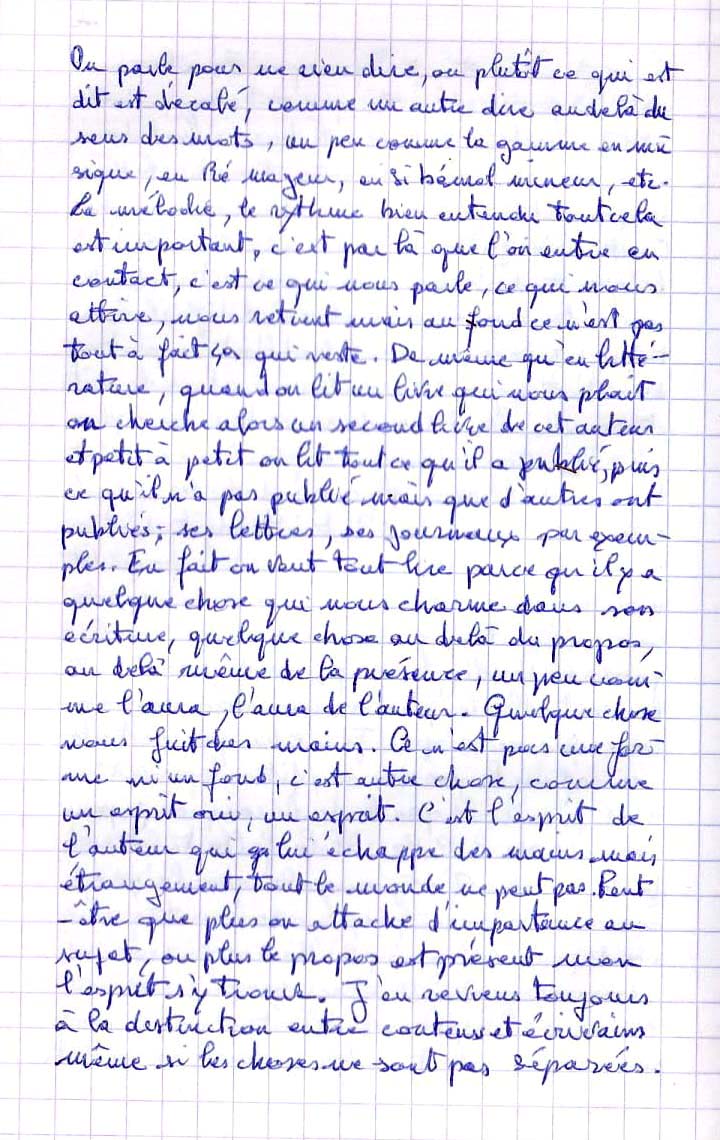 On parle pour ne rien dire, ou plutôt ce qui est
dit est décalé, comme un autre dire audelà du
sens des mots, un peu comme la gamme en mu
sique, en Ré majeur, en si bémol mineur, etc.
La mélodie, le rythme bien entendu tout cela
est important, c'est par là que l'on entre en
contact, c'est ce qui nous parle, ce qui nous
attire, nous retient mais au fond ce n'est pas
tout à fait ça qui reste. De même qu'en litté-
rature, quand on lit un livre qui nous plaît
on cherche alors un second livre de cet auteur
et petit à petit on lit tout ce qu'il a publié, puis
ce qu'il n'a pas publié mais que d'autres ont
publiés; ses lettres, ses journaux par exem-
ples. En fait on veut tout lire parce qu'il y a
quelque chose qui nous charme dans son
écriture, quelque chose au delà du propos,
au delà même de la présence, un peu com-
me l'aura, l'aura de l'auteur. Quelque chose
nous fuit des mains. Ce n'est pas une for-
me ni un fond, c'est autre chose, comme
un esprit oui, un esprit. C'est l'esprit de
l'auteur qui lui échappe des mains mais
étrangement, tout le monde ne peut pas. Peut
-être que plus on attache d'importance au
sujet, ou plus le propos est présent
l'esprit s'y trouve. J'en reviens toujours
à la distinction entre conteurs et écrivains
même si les choses ne sont pas séparées.